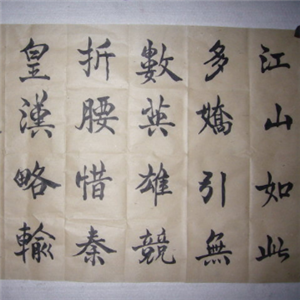 江山如此
多嬌引無
數英雄競
折腰惜秦
皇漢略輸